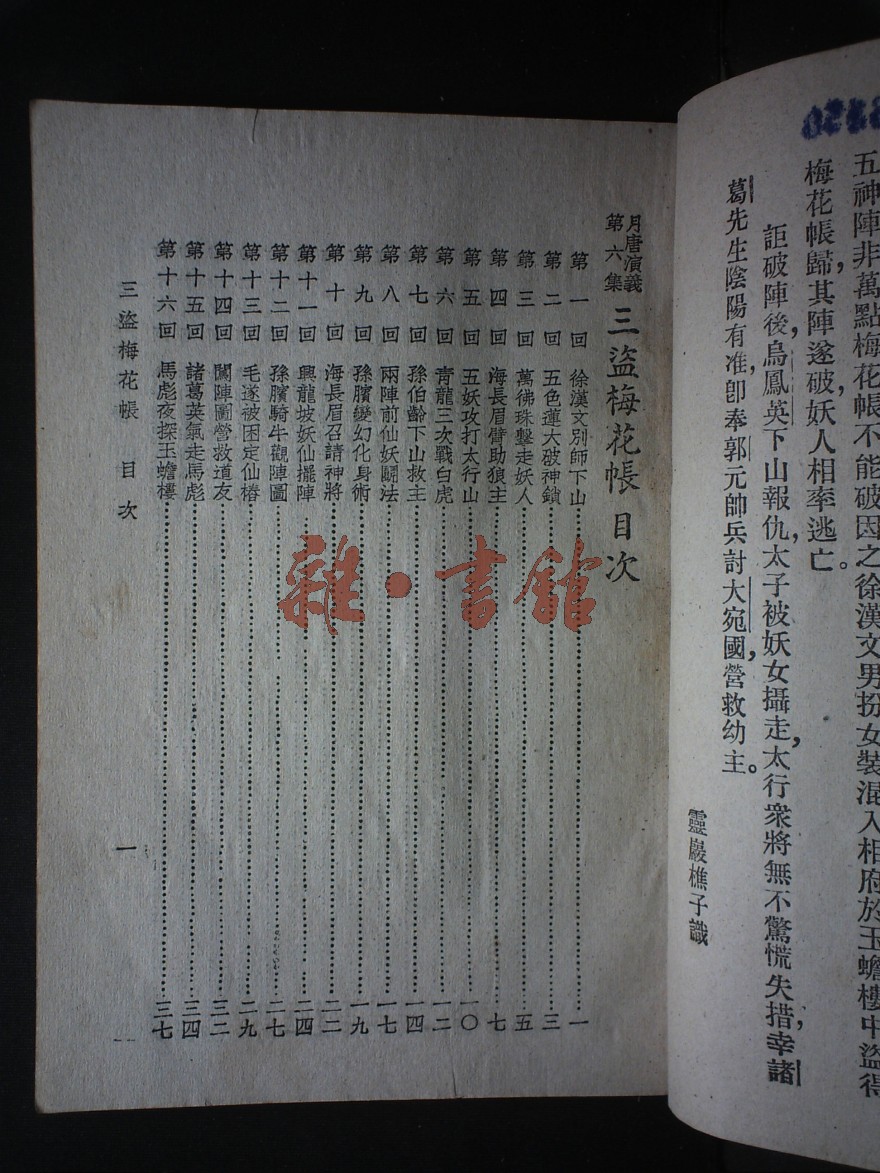 五神陣非萬點梅花帳不能破因之徐漢文男扮女裝混入相府於玉蟾樓中盜得
梅花帳歸，其陣遂破，妖人相率逃亡。
詎破陣後，烏鳳英下山報仇，太子被妖女攝走，太行衆將無不驚慌失措，幸諸
葛先生陰陽有准，卽奉郭元帥兵討大宛國，營救幼主。
靈巖樵子識
月唐演義第六集 三盜梅花帳 目次
第一回 徐漢文別師下山 一
第二回 五色蓮大破神鎖 三
第三回 萬彿珠擊走妖人 五
第四回 海長眉臂助狼主 七
第五回 五妖攻打太行山 一〇
第六回 青龍三次戰白虎 一二
第七回 孫伯齡下山救主 一四
第八回 兩陣前仙妖鬭法 一七
第九回 孫臏變幻化身術 一九
第十回 海長眉召請神將 二二
第十一回 興龍坡妖仙擺陣 二四
第十二回 孫臏騎牛觀陣圖 二七
第十三回 毛遂被困定仙樁 二九
第十四回 闖陣圖營救道友 三二
第十五回 諸葛英氣走馬彪 三四
第十六回 馬彪夜探玉蟾樓 三七
三盜梅花帳 目次 一
雜·書館